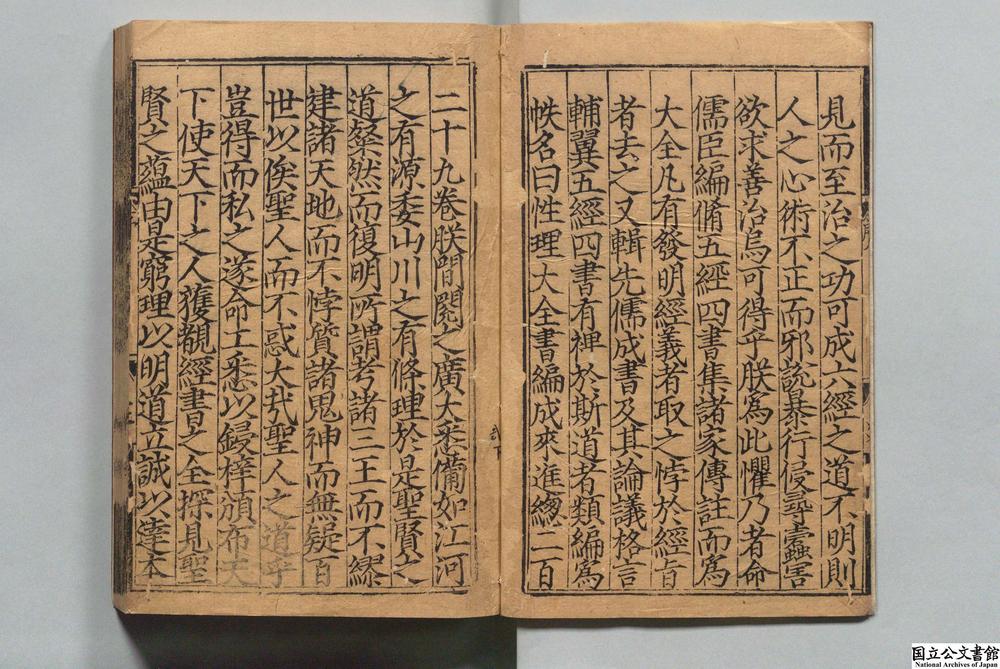 見而至治之功可成六經之道不明則
人之心術不正而邪說暴行侵尋蠹害
欲求善治烏可得乎朕爲此懼乃者命
儒臣編脩五經四書集諸家傳註而爲
大全凡有發明經義者取之悖於經旨
者去之又輯先儒成書及其論議格言
輔翼五經四書有裨於斯道者類編爲
帙名曰性理大全書編成來進緫二百
二十九卷朕間閱之廣大悉備如江河
之有源委山川之有條理於是聖賢之
道粲然而復明所謂考諸三王而不繆
建諸天地而不悖質諸鬼神而無疑百
世以俟聖人而不惑大㢤聖人之道乎
豈得而私之遂命工悉以鋟梓頒布天
下使天下之人獲覩經書之全探見聖
賢之蘊由是窮理以明道立誠以達本
国立公文書館
National Archives of Japan